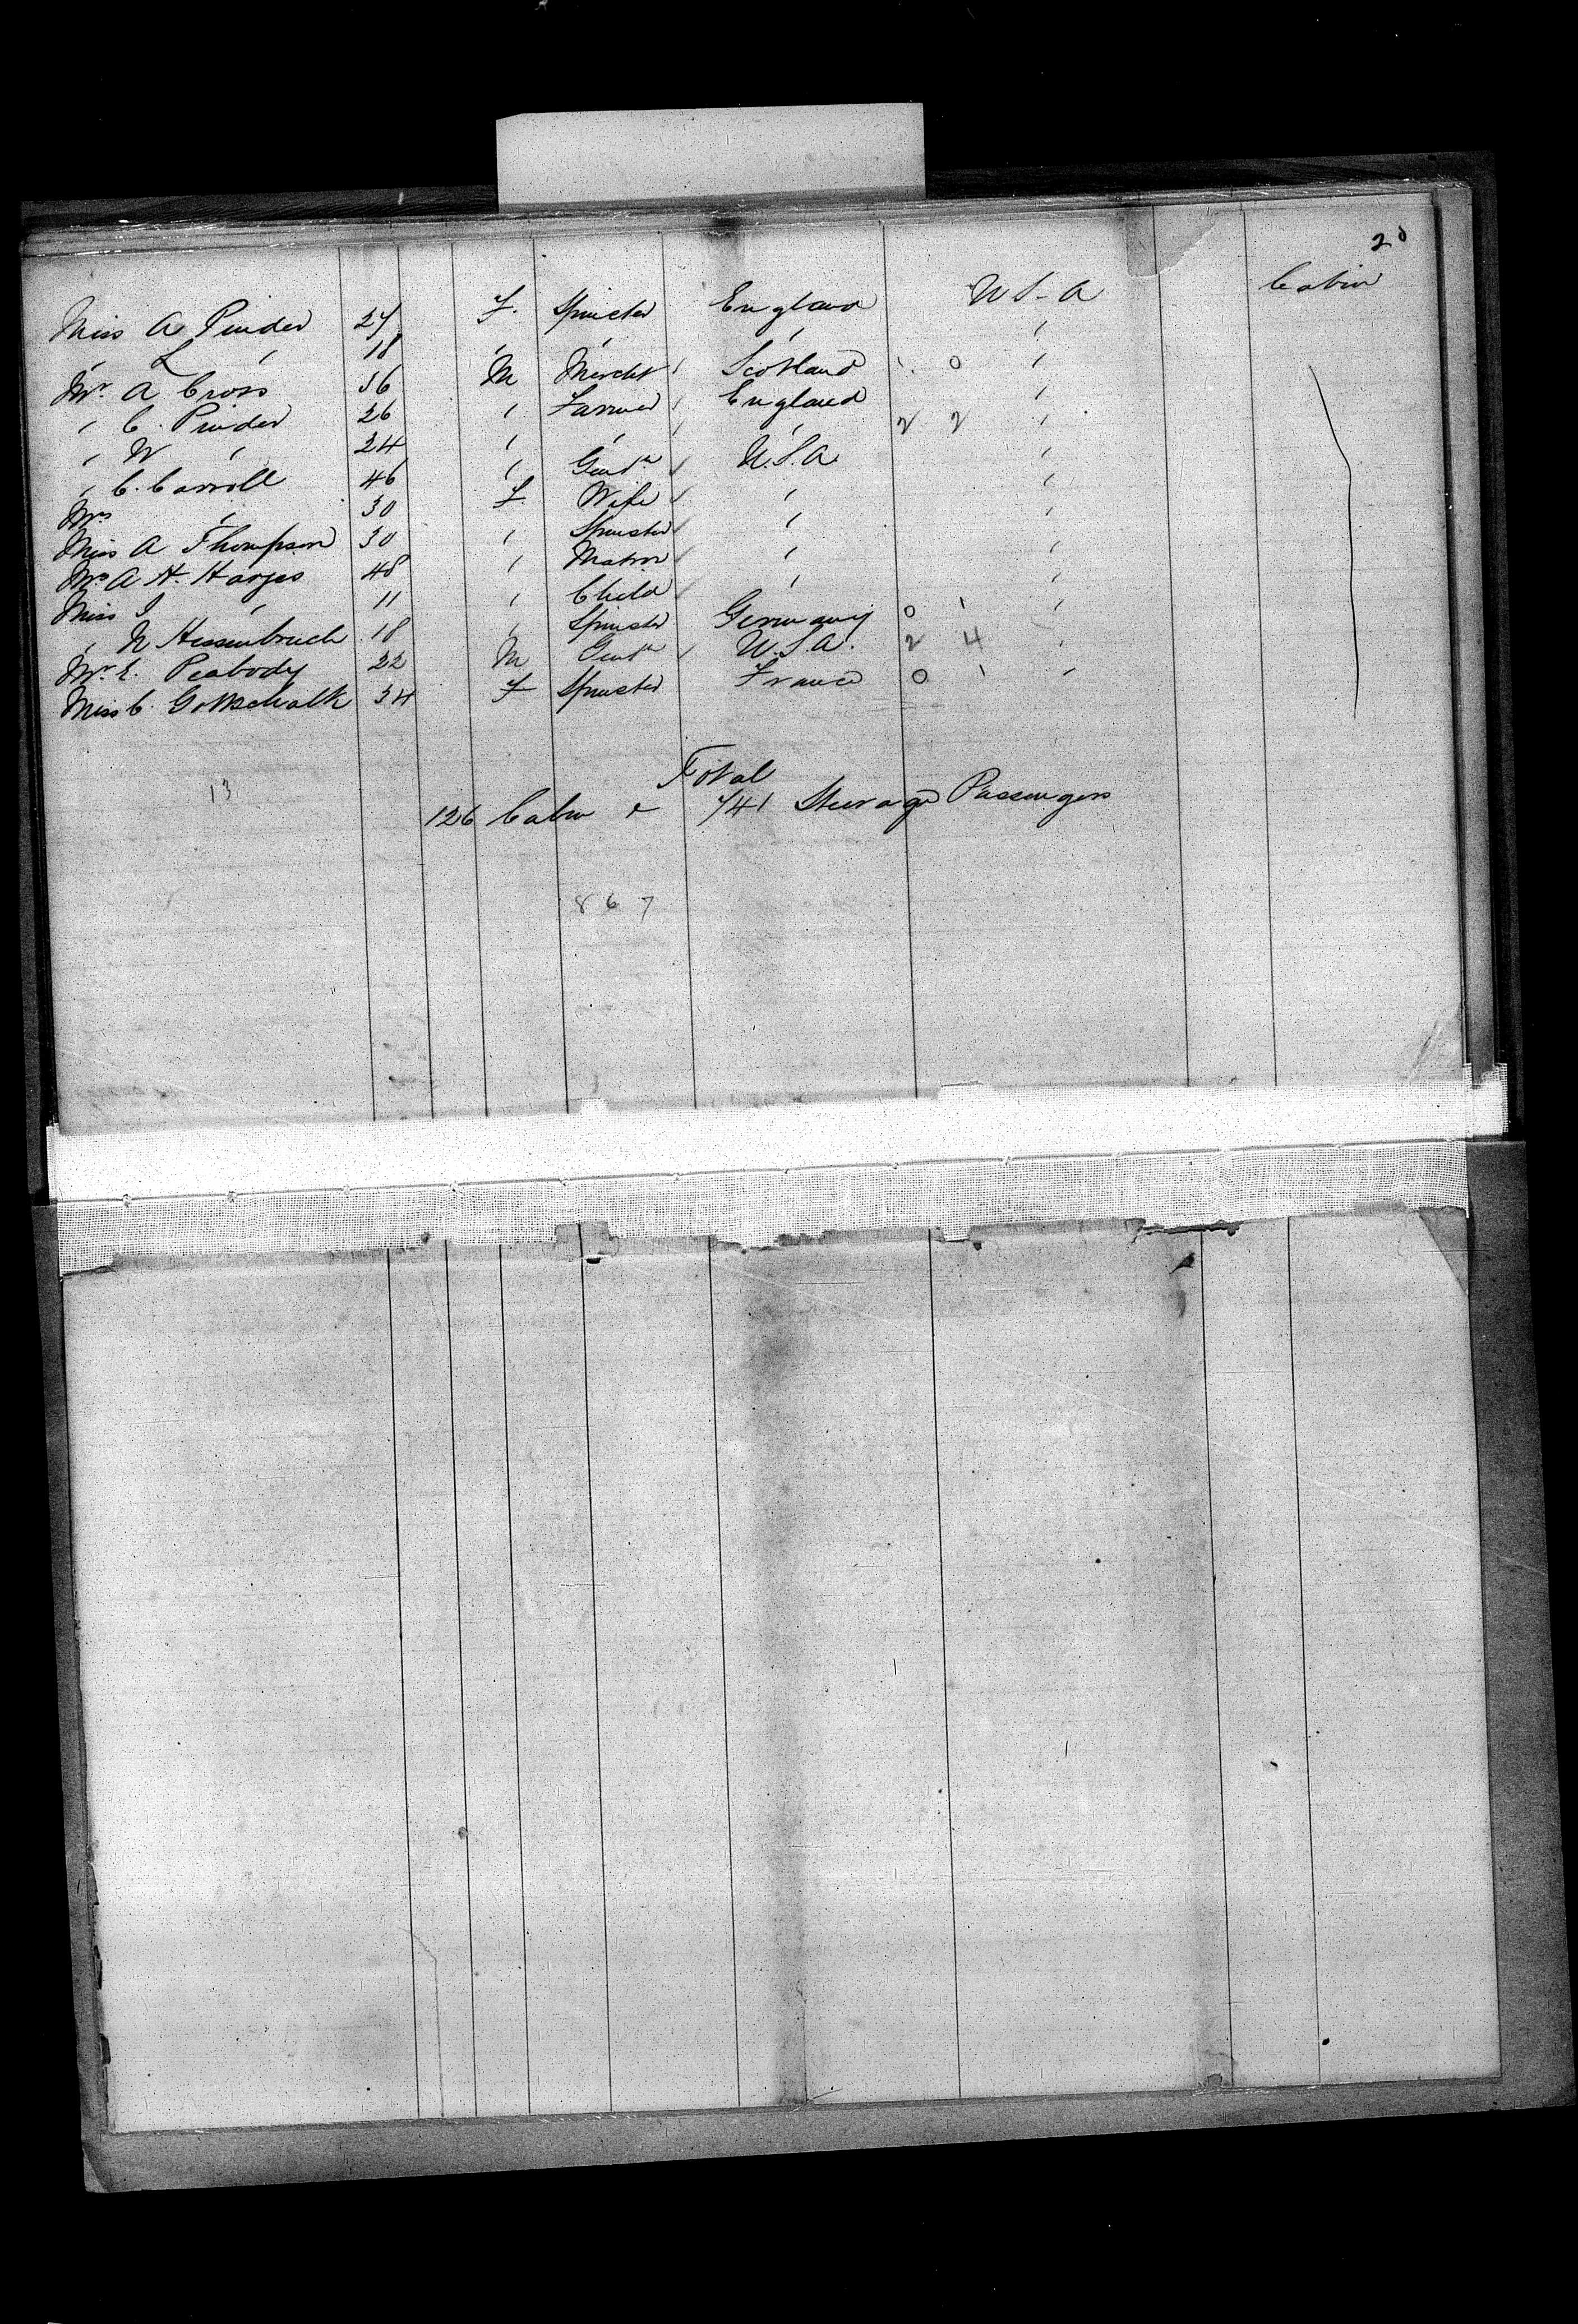 20
Miss A Pinder 27 F. Spinster England U S. A Cabin
" L " 18 " " " "
Mr. A Cross 36 M Mercht Scotland 1. 0 "
" C. Pinder 26 " Farmer England "
" W " 24 " " " 2 2 "
" C. Carroll 46 " Gentn U.S.A. "
Mrs " 30 F Wife " "
Miss A Thompson 30 " Spinster " "
Mrs A H. Harjes 48 " Matron " "
Miss I " 11 " Child " "
" N Hessenbruch 18 " Spinster Germany 0 1 "
Mr. E. Peabody 22 M Gentn U.S.A. 2 4 "
Miss C. Gottschalk 34 F Spinster France 0 1 "
Total
13
126 Cabin & 741 Steerage Passengers
867